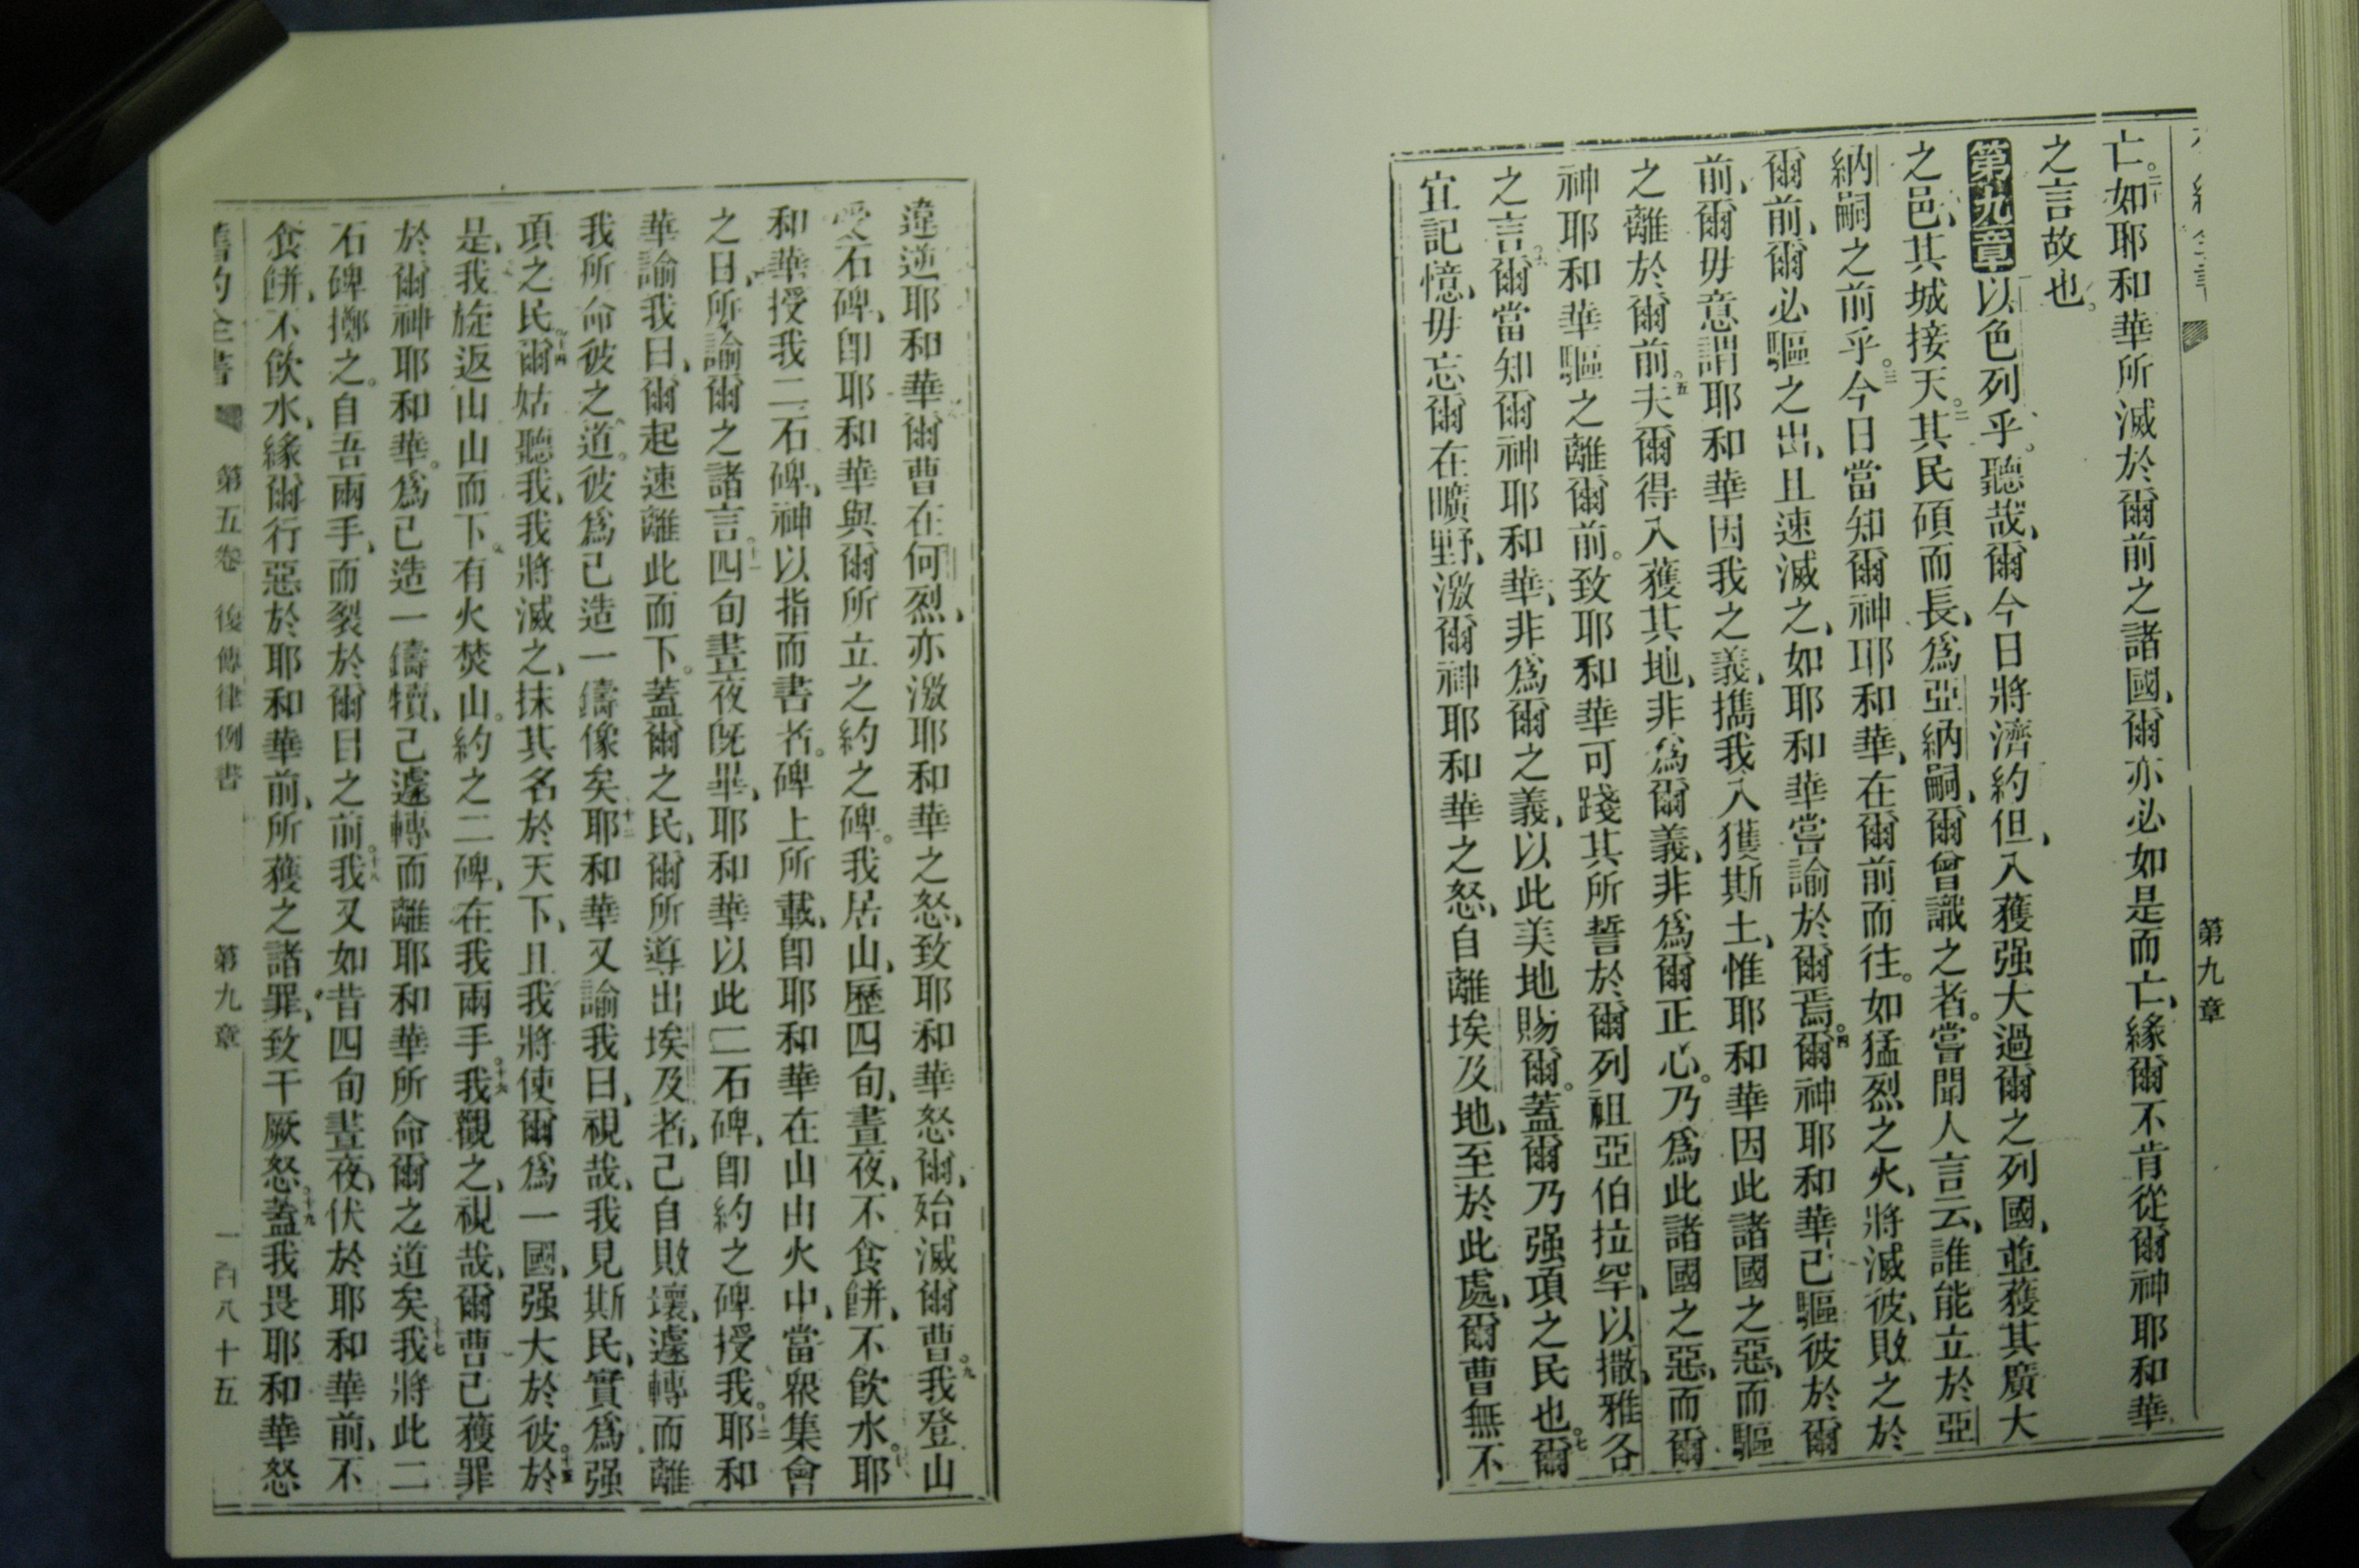 第九章
亡。二十如耶和華所滅於爾前之諸國、爾亦必如是而亡、緣爾不肯從爾神耶和華
之言故也。
第九章以色列乎。聽哉、爾今日將濟約但、入獲强大過爾之列國、並獲其廣大
之邑、其城接天。二其民碩而長、爲亞納嗣、爾曾識之者。嘗聞人言云、誰能立於亞
納嗣之前乎。三今日當知爾神耶和華、在爾前而往。如猛烈之火、將滅彼、敗之於
爾前、爾必驅之出、且速滅之、如耶和華嘗諭於爾焉。四爾神耶和華已驅彼於爾
前、爾毋意謂耶和華因我之義、擕我入獲斯土、惟耶和華因此諸國之惡、而驅
之離於爾前。五夫爾得入獲其地、非爲爾義、非爲爾正心。乃爲此諸國之惡、而爾
神耶和華驅之離爾前。致耶和華可踐其所誓於爾列祖亞伯拉罕、以撒、雅各
之言。六爾當知爾神耶和華、非爲爾之義、以此美地賜爾。蓋爾乃强項之民也。七爾
宜記憶、毋忘爾在曠野、激爾神耶和華之怒、自離埃及地、至於此處、爾曹無不
違逆耶和華爾曹在何烈、亦激耶和華之怒、致耶和華怒爾、殆滅爾曹。九我登山
受石碑、卽耶和華與爾所立之約之碑。我居山、歷四旬、晝夜、不食餅、不飮水。耶
和華授我二石碑、神以指而書者。碑上所載、卽耶和華在山由火中、當衆集會
之日、所諭爾之諸言。十一四旬晝夜旣畢、耶和華以此二石碑、卽約之碑授我。十二耶和
華諭我曰、爾起速離此而下。蓋爾之民、爾所導出埃及者、已自敗壞、遽轉而離
我所命彼之道。彼爲己造一鑄像矣。十三耶和華又諭我曰、視哉、我見斯民、實爲强
項之民。十四爾姑聽我、我將滅之、抹其名於天下、且我將使爾爲一國、强大於彼。十五於
是、我旋返山山而下。有火焚山。約之二碑、在我兩手。十六我觀之、視哉、爾曹已獲罪
於爾神耶和華。爲己造一鑄犢、已遽轉而離耶和華所命爾之道矣。十七我將此二
石碑擲之。自吾兩手、而裂於爾目之前。十八我又如昔四旬晝夜、伏於耶和華前、不
食餅、不飮水、緣爾行惡於耶和華前、所獲之諸罪、致干厥怒。十九蓋我畏耶和華怒
舊約全書 第五卷 後傳律例書 第九章 一百八十五